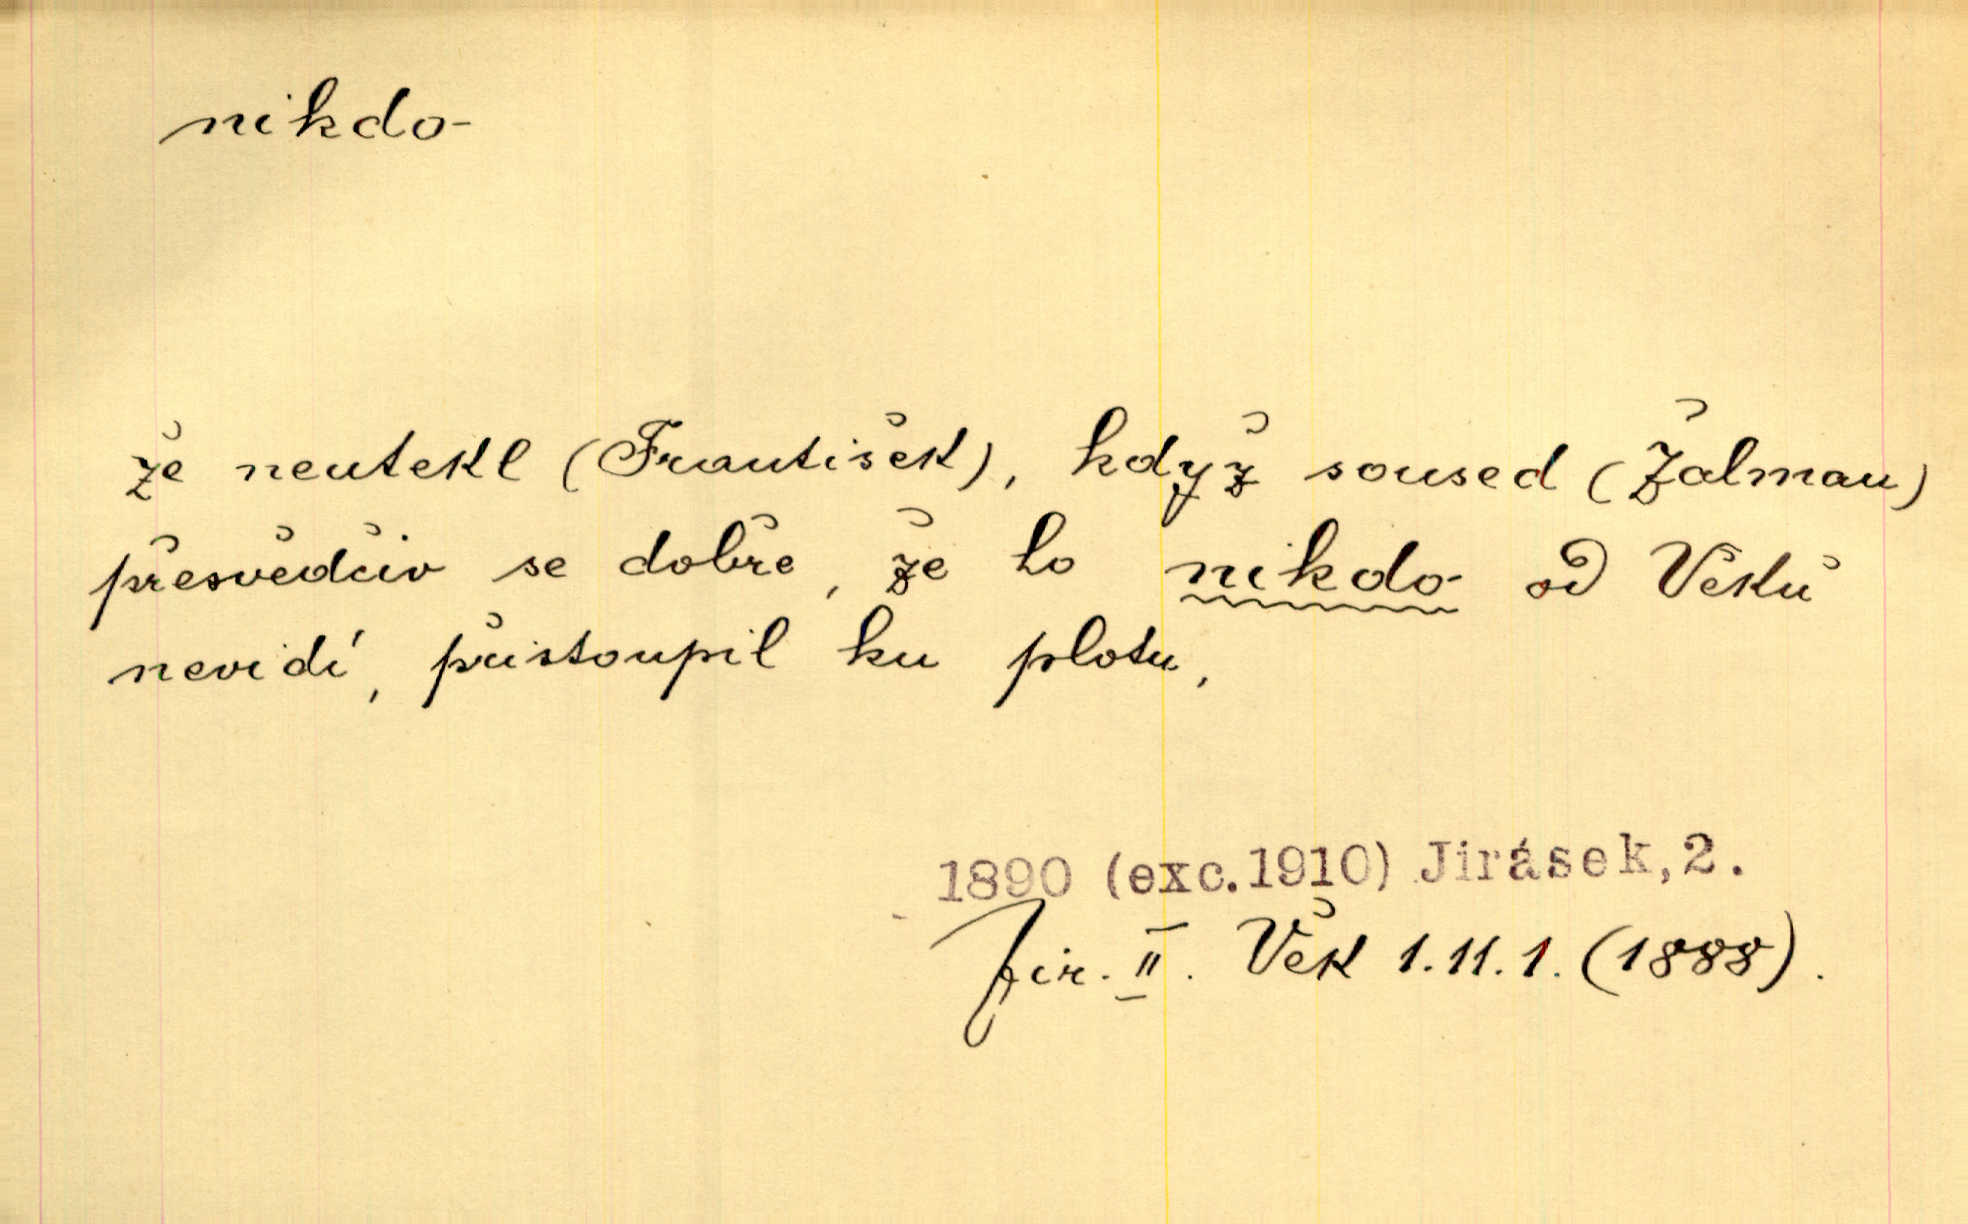 nikdo
že neutekl (František), když soused (Žalman)
přesvědčiv se dobře, že ho nikdo od Věků
nevidí, přistoupil ku plotu,
1890 (exc.1910) Jirásek,2.
Jir. II. Věk 1.11.1. (1888).